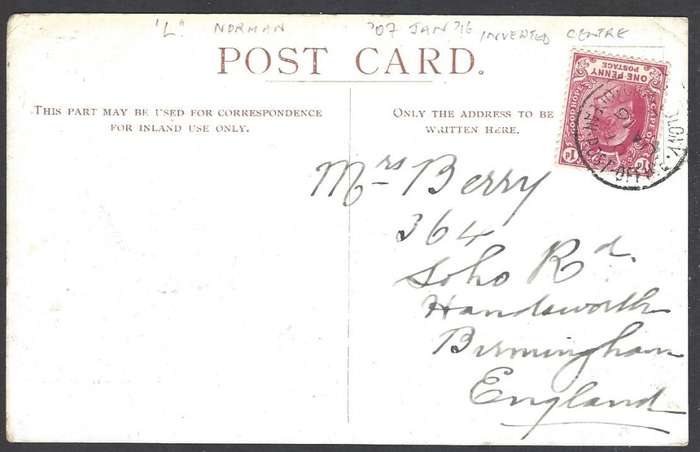 "L" NORMAN '07 JAN 16 INVERTED CENTRE
POST CARD.
THIS PART MAY BE USED FOR CORRESPONDENCE
FOR INLAND USE ONLY.
ONLY THE ADDRESS TO BE
WRITTEN HERE.
ONE PENNY
POSTAGE
CAPE OF GOOD HOPE
1d 1d
Mrs Berry
364
Soho Rd.
Handsworth
Birmingham
England